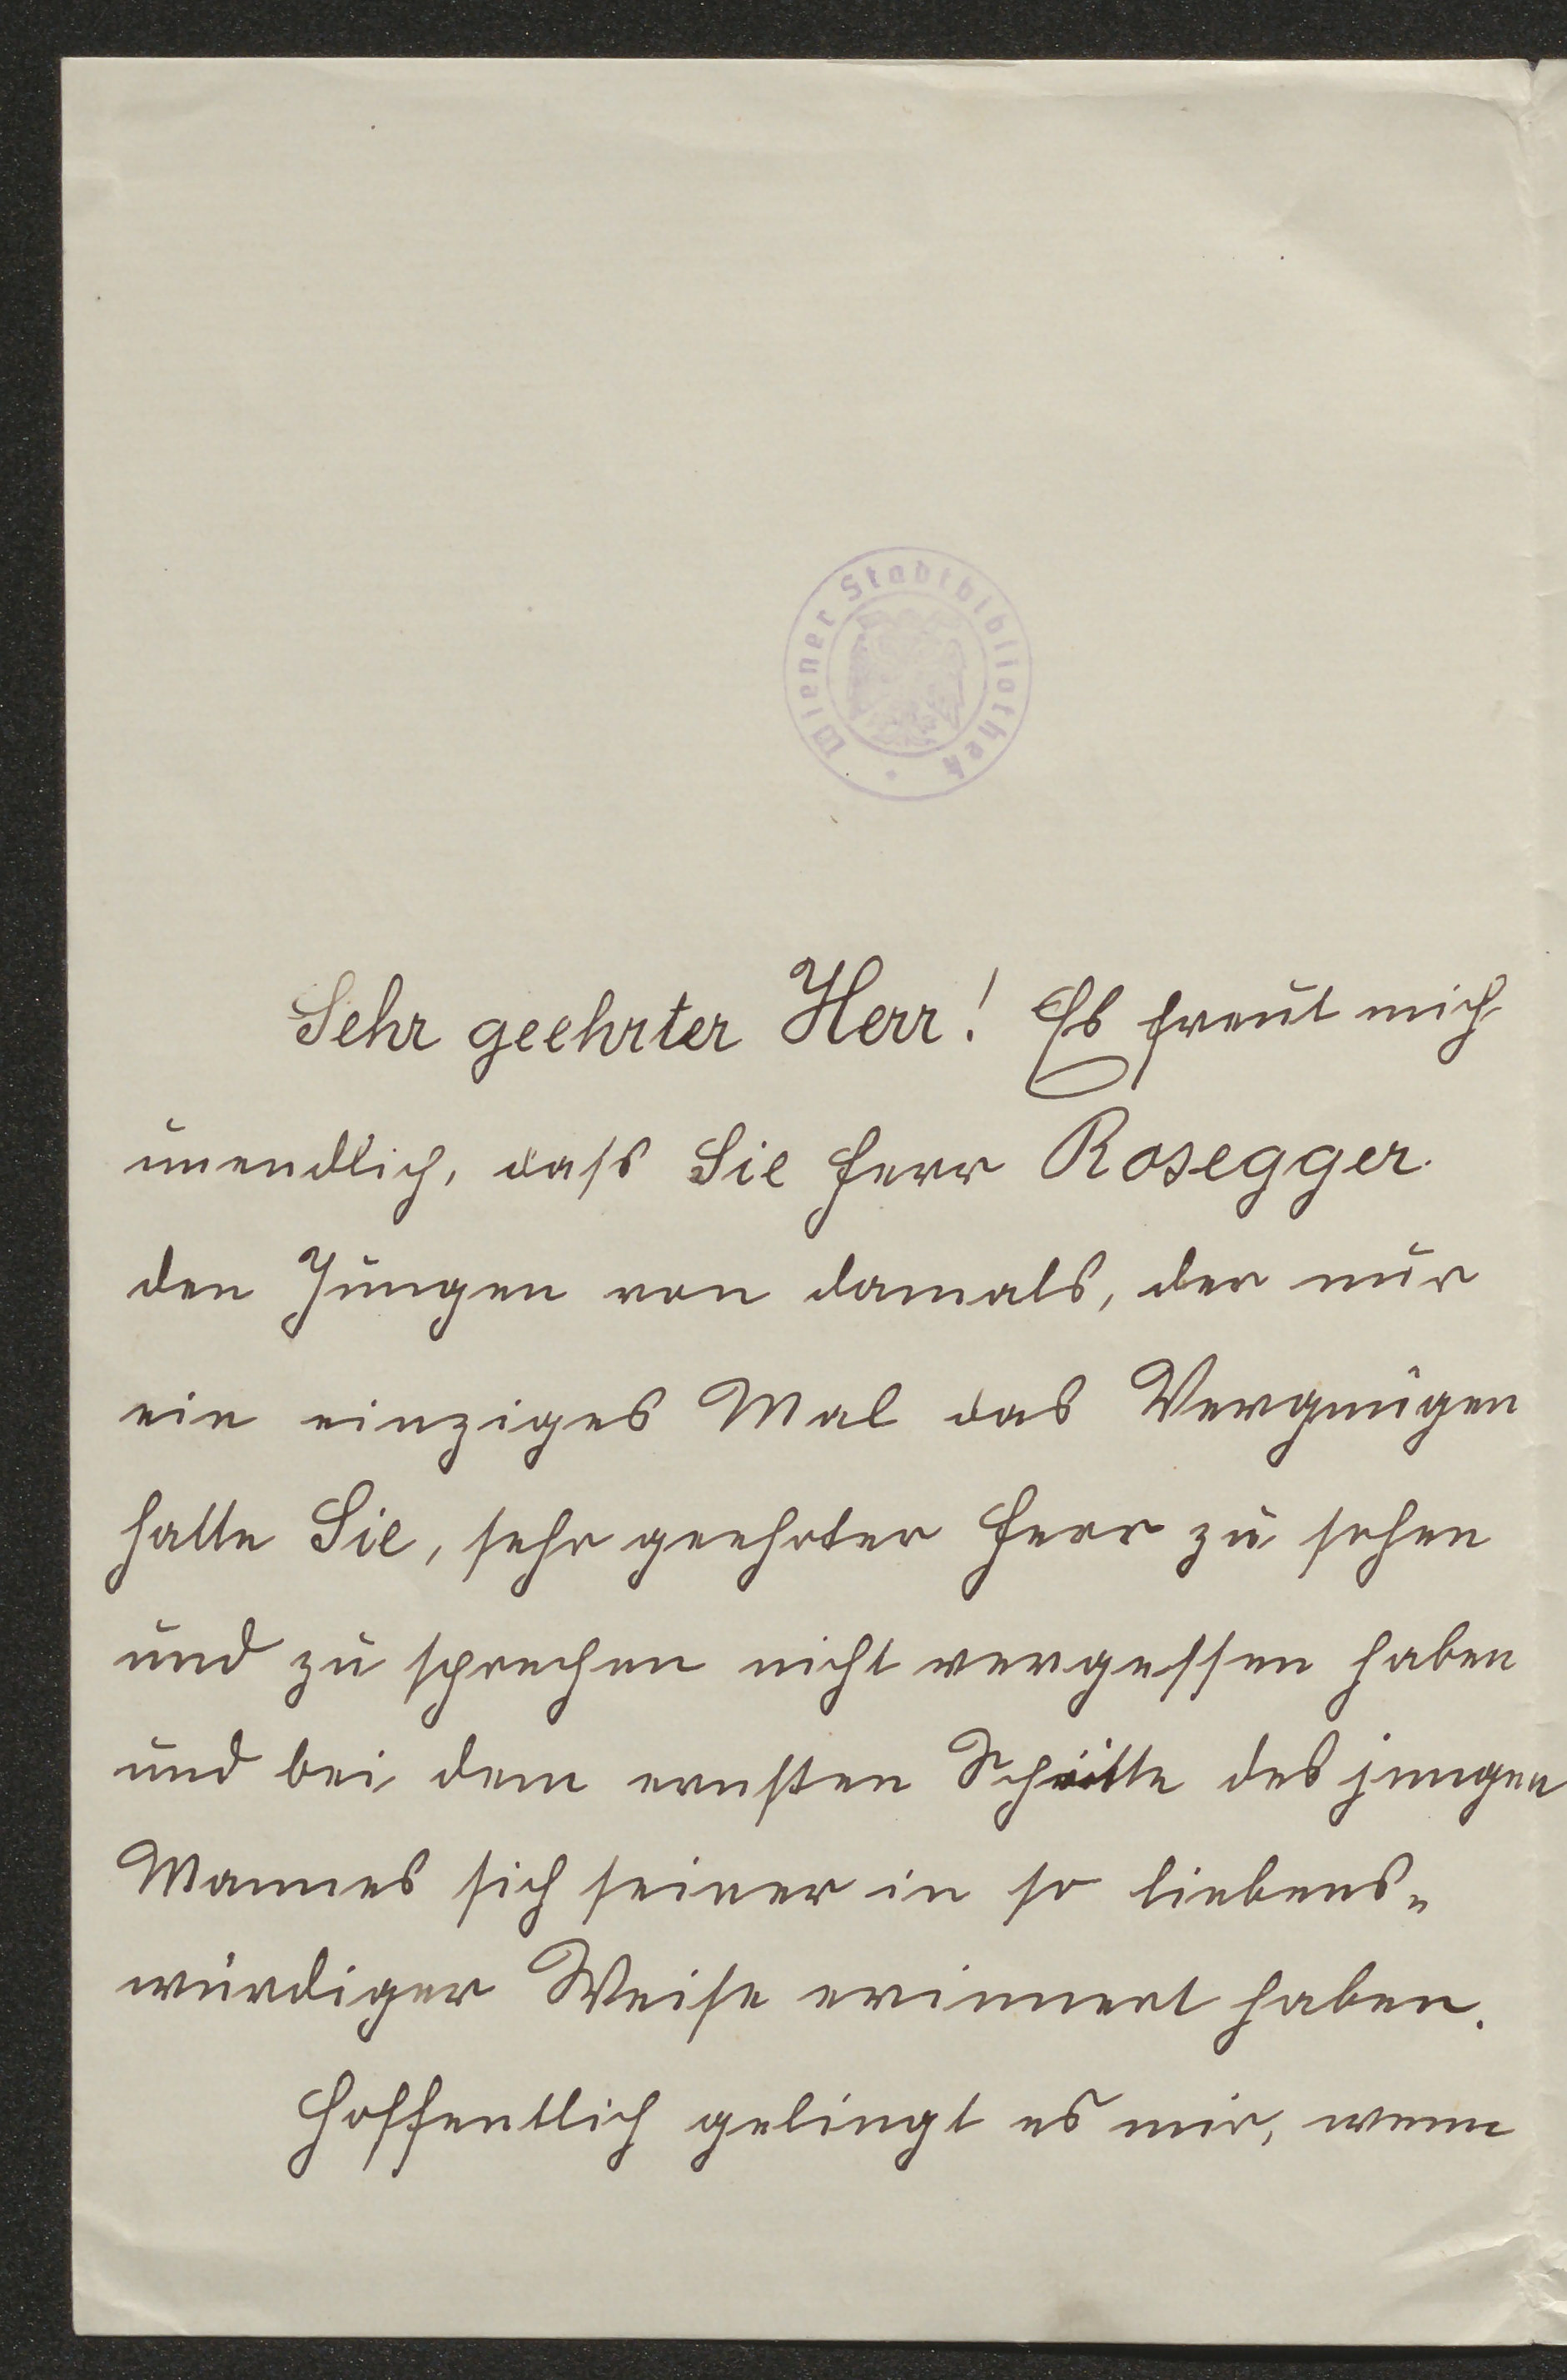 Wiener Stadtbibliothek
Sehr geehrter Herr! Es freut mich
unendlich, dass Sie Herr Rosegger
den Jungen von damals, der nur
ein einziges Mal das Vergnügen
hatte Sie, sehr geehrter Herr zu sehen
und zu sprechen nicht vergessen haben
und bei dem ernsten Schritte des jungen
Mannes sich seiner in so liebens-
würdiger Weise erinnert haben.
Hoffentlich gelingt es mir, wenn